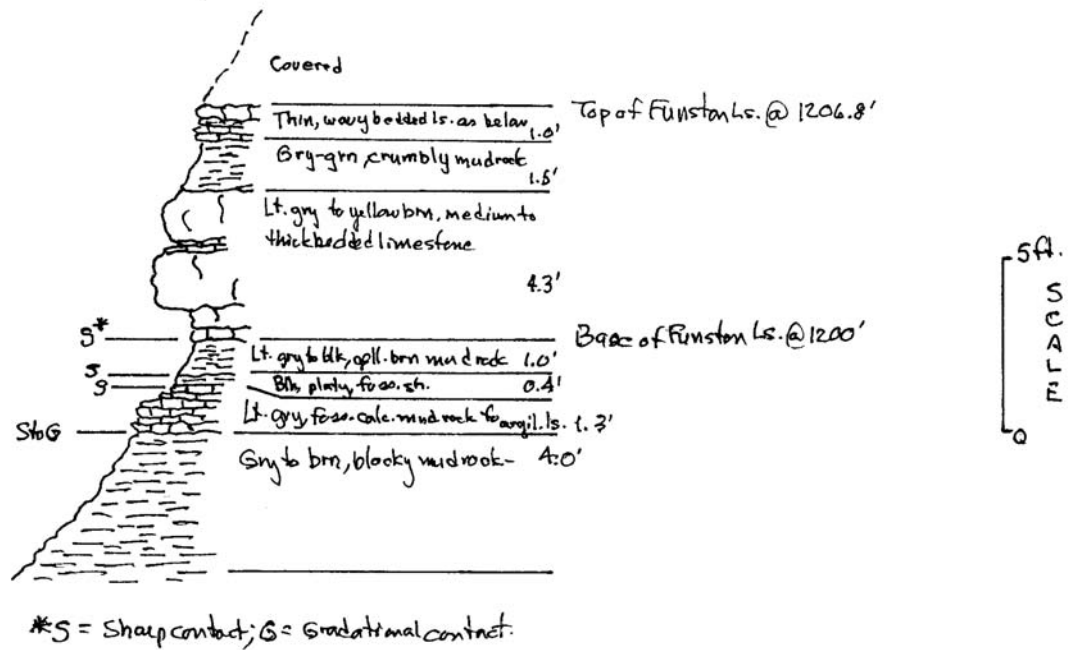 Covered
Top of Funston Ls. @ 1206.8'
Thin, wavy bedded ls. as below 1.0'
Gry-grn, crumbly mudrock
1.5'
Lt. gry to yellow brn, medium to
thick bedded limestone
4.3'
5ft.
SCALE
0
S*
Base of Funston Ls. @ 1200'
Lt. gry to blk, mudrock 1.0'
S
Blk, platy, foss. sh. 0.4'
S
Lt. gry, foss. calc. mudrock to argil. ls. 1.3'
StoG
Gry to brn, blocky mudrock- 4.0'
*S = Sharp contact; G = Gradational contact.